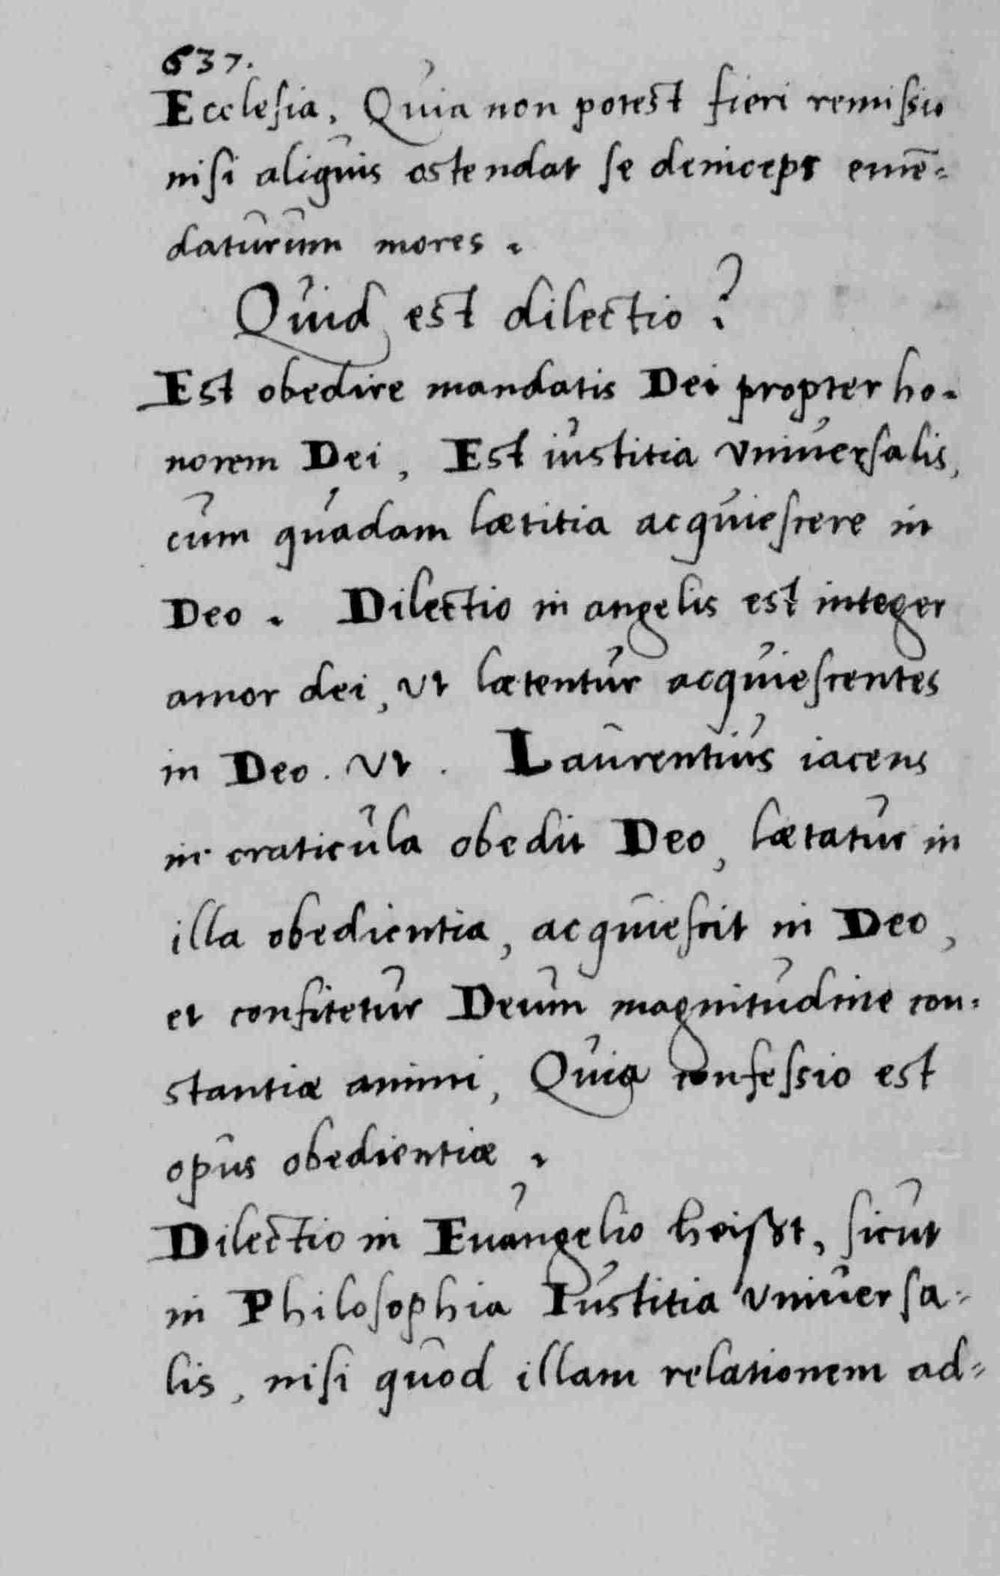 637.
Ecclesia. Quia non potest fieri remissio
nisi aliquis ostendat se deinceps emē-
daturum mores.
Quid est dilectio?
Est obedire mandatis Dei propter ho-
norem Dei, Est iustitia vniuersalis,
cum quadam lætitia acquiescere in
Deo. Dilectio in angelis est integer
amor dei, vt lætentur acquiescentes
in Deo. Vt. Laurentius iacens
in craticula obedit Deo, lætatur in
illa obedientia, acquiescit in Deo,
et confitetur Deum magnitudine con-
stantiæ animi, Quia confessio est
opus obedientiæ.
Dilectio in Euangelio heißt, sicut
in Philosophia Iustitia vniuersa-
lis, nisi quod illam relationem ad-